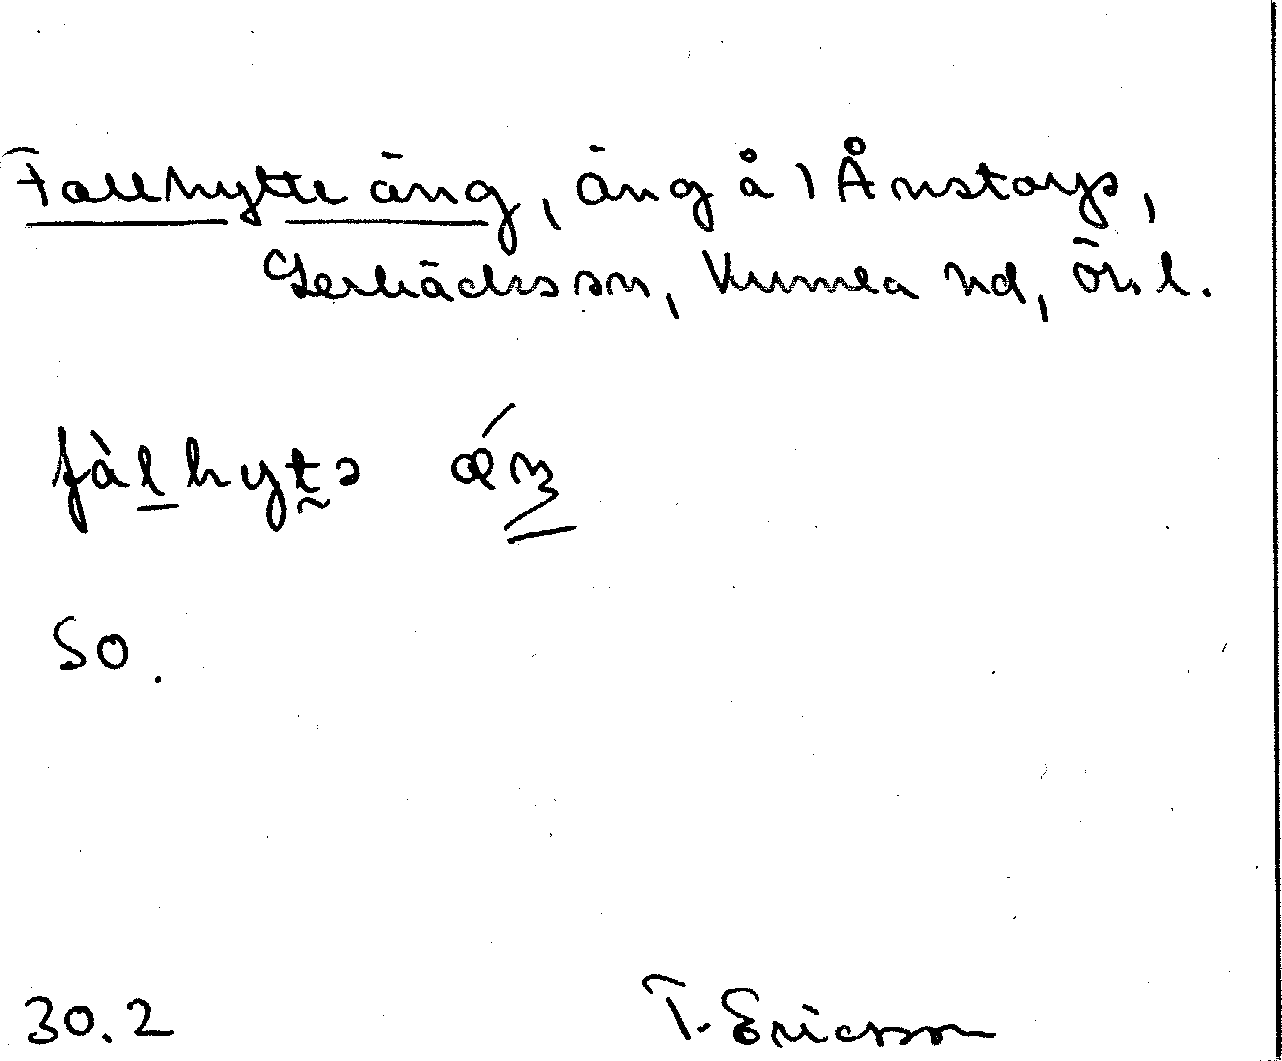 Fallhytte äng, äng å 1 Ånstorp,
Lerbäcks sn, Kumla hd, Ör. l.
fàlhytə ǽŋ
So.
30.2 T. Ericsson